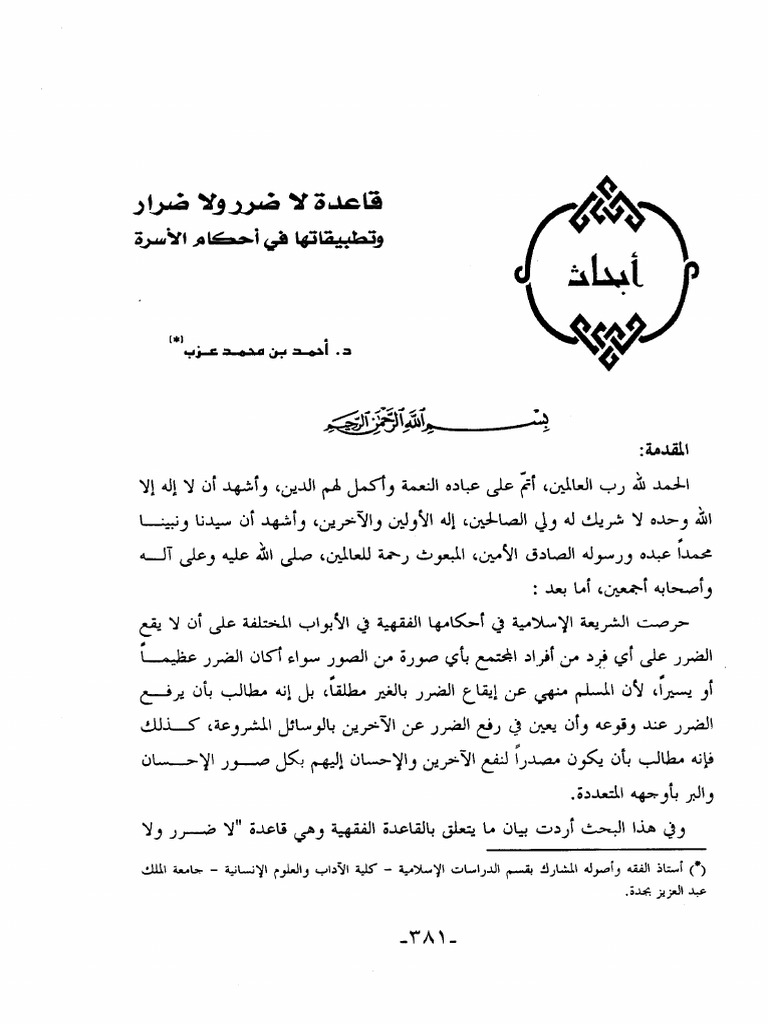 قاعدة لا ضرر ولا ضرار
وتطبيقاتها في أحكام الأسرة
أبحاث
د. أحمد بن محمد عزب (*)
بسم الله الرحمن الرحيم
المقدمة:
الحمد لله رب العالمين، أتمّ على عباده النعمة وأكمل لهم الدين، وأشهد أن لا إله إلا
الله وحده لا شريك له ولي الصالحين، إله الأولين والآخرين، وأشهد أن سيدنا ونبينا
محمداً عبده ورسوله الصادق الأمين، المبعوث رحمة للعالمين، صلى الله عليه وعلى آله
وأصحابه أجمعين، أما بعد :
حرصت الشريعة الإسلامية في أحكامها الفقهية في الأبواب المختلفة على أن لا يقع
الضرر على أي فرد من أفراد المجتمع بأي صورة من الصور سواء أكان الضرر عظيماً
أو يسيراً، لأن المسلم منهي عن إيقاع الضرر بالغير مطلقاً، بل إنه مطالب بأن يرفع
الضرر عند وقوعه وأن يعين في رفع الضرر عن الآخرين بالوسائل المشروعة، كذلك
فإنه مطالب بأن يكون مصدراً لنفع الآخرين والإحسان إليهم بكل صور الإحسان
والبر بأوجهه المتعددة.
وفي هذا البحث أردت بيان ما يتعلق بالقاعدة الفقهية وهي قاعدة "لا ضرر ولا
(*) أستاذ الفقه وأصوله المشارك بقسم الدراسات الإسلامية – كلية الآداب والعلوم الإنسانية – جامعة الملك
عبد العزيز بجدة.
-٣٨١-